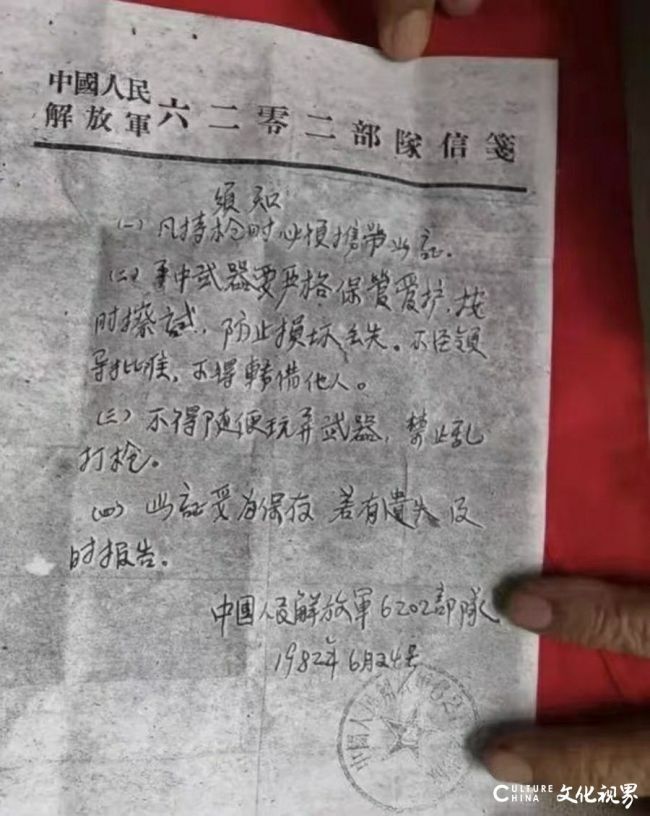 中國人民
解放軍六二零二部隊信箋
須知
(一) 凡持枪时必须携带此証.
(二) 手中武器要严格保管爱护、按
时擦拭、防止損坏丢失。不经领
导批准, 不得轉借他人。
(三) 不得随便玩弄武器, 禁止乱
打枪。
(四) 此証妥为保存 若有遺失 及
时报告。
中国人民解放軍6202部隊
1982年6月24号
中國人民解放軍
CULTURE CHINA 文化视界